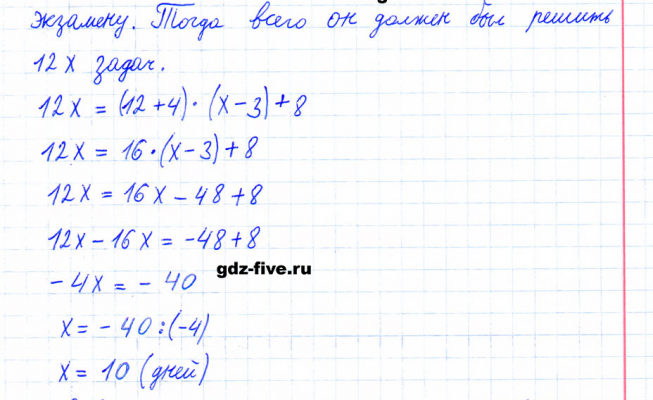 экзамену. Тогда всего он должен был решить
12 x задач.
12x = (12+4)·(x-3)+8
12x = 16·(x-3)+8
12x = 16x - 48 + 8
12x - 16x = -48+8
-4x = -40
gdz-five.ru
x = -40:(-4)
x = 10 (дней)